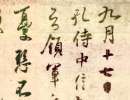 九月十七日
孔侍中信
領軍
憂懸不